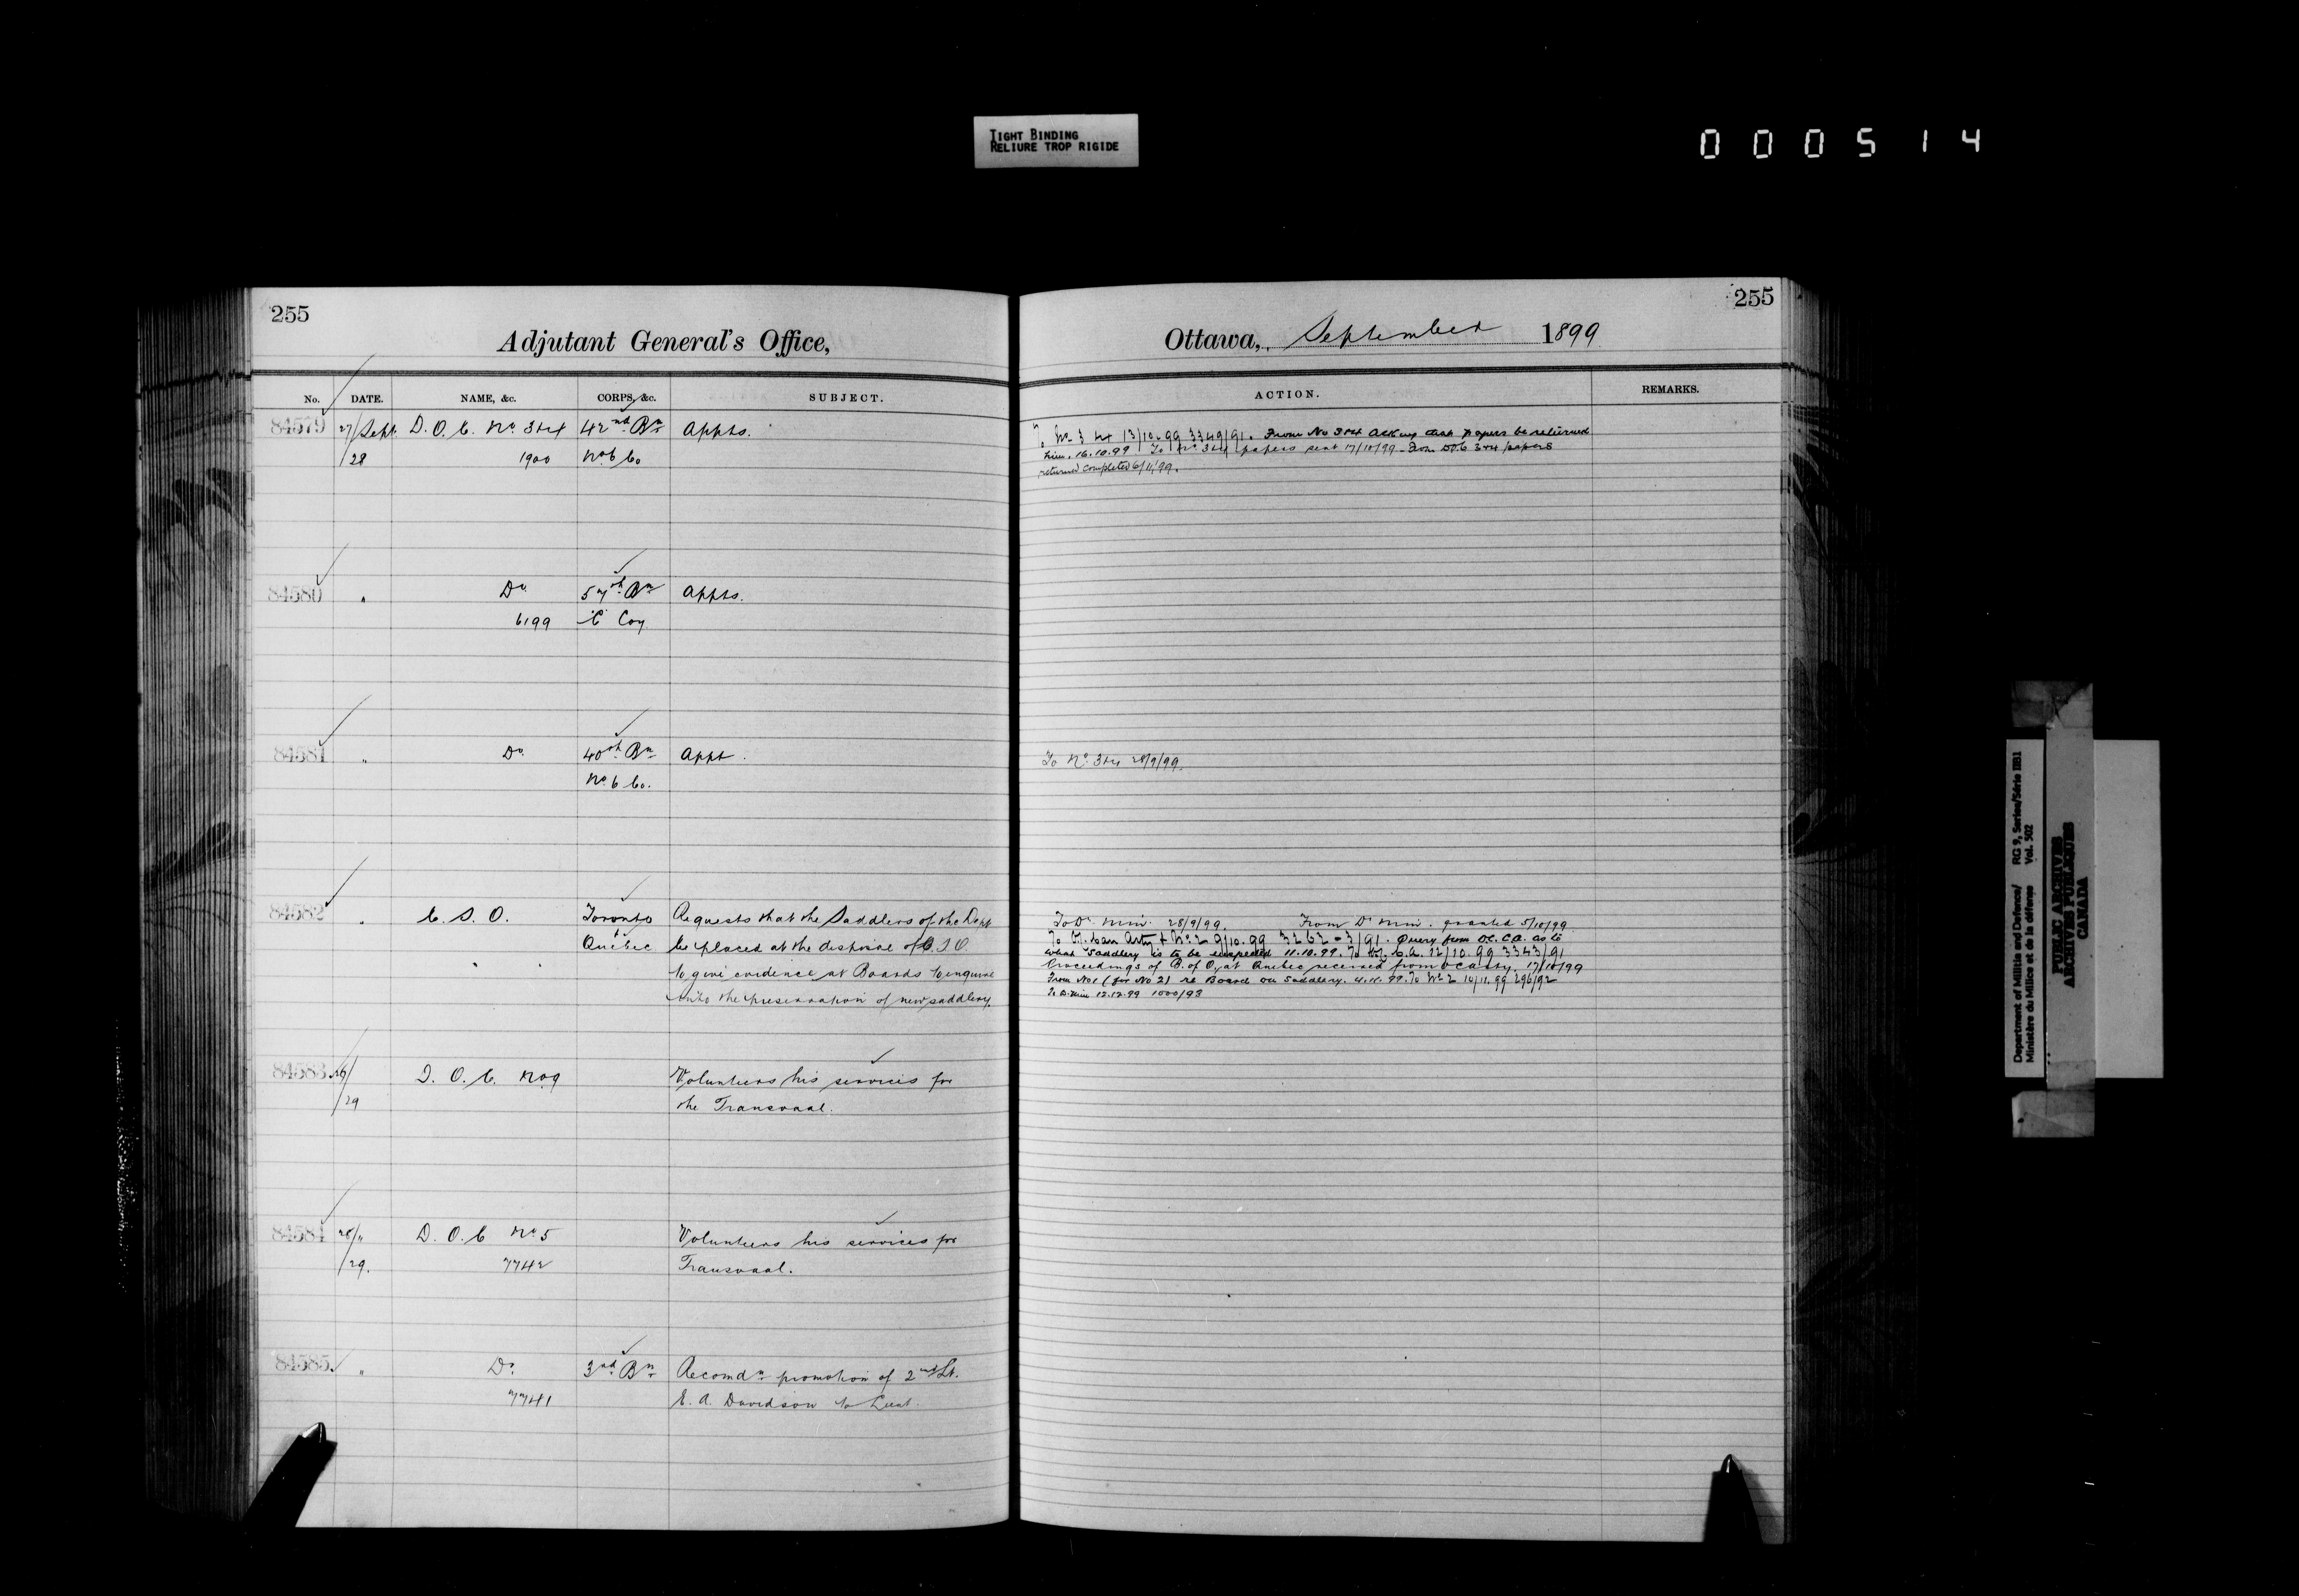 TIGHT BINDING
RELIURE TROP RIGIDE
000514
255
Adjutant General's Office,
No. DATE. NAME, &c. CORPS, &c. SUBJECT.
84579 27/Sept. D. O. C. No. 3 & 4 42nd Bn Appts.
/28 1900 No. 6 Co
84580 " Do 57th Bn Appts.
6199 'C' Coy
84581 " Do 40th Bn Appt.
No. 6 Co.
84582 " C. S. O. Toronto Requests that the Saddlers of the Dept
& Quebec be placed at the disposal of
to give evidence at Boards to enquire
into the preservation of new saddlery.
84583 D. O. C. No 9 Volunteers his services for
/29 the Transvaal.
84584 28/" D. O. C No 5 Volunteers his services for
/29. 7742 Transvaal.
84585 " Do 3rd Bn Recomdn promotion of 2nd Lt.
7741 E. A. Davidson to Lieut.
255
Ottawa, September 1899
ACTION. REMARKS.
To No 3 & 4 13/10.99 3349/91. From No 3 & 4 asking that papers be returned
him. 16.10.99 To No 3 & 4 papers sent 17/10/99. From D.O.C 3 & 4 papers
returned completed 6/11/99.
To No. 3 & 4 28/9/99.
To Dr Min. 28/9/99. From Dr Min. granted 5/10/99
To Can Arty & No. 2 9/10.99 3262-3/91. Query from O.C. C.A. as to
what Saddlery is to be inspected 11.10.99. To C.A. 12/10.99 3343/91
Proceedings of B. of O. at Quebec received from O C arty. 17/10/99
From No 1 (for No 2) re Board on Saddlery. 4.11.99. To No 2 14/11.99 296/92
To D. Min 12.12.99 1000/93
Department of Militia and Defence/ RG 9, Series/Série IIB1
Ministère du Milice et de la défense Vol. 502
PUBLIC ARCHIVES
ARCHIVES PUBLIQUES
CANADA